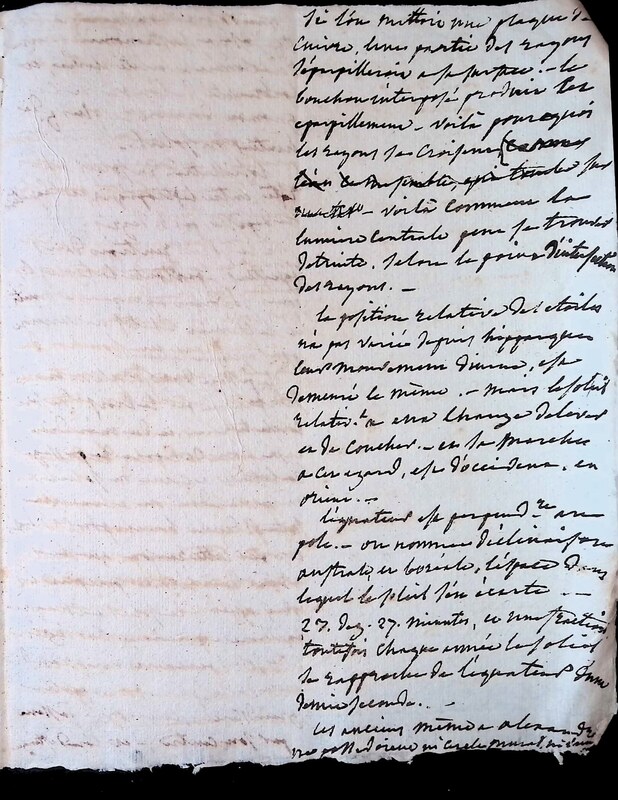 Si l'on mettoit une plaque de
Cuivre, une partie des rayons
s'éparpilleroit a sa surface. - le
bouchon interposé produit les
eparpillemens - voilà pourquoi
les rayons se croisent
voilà comment la
lumiere centrale peut se trouver
detruite, selon le point d'intersection
des rayons. -
la position relative des etoiles
n'a pas varié depuis hipparque
leur mouvement diurne, est
demeuré le même. - mais le soleil
relativt a elles change de lever
et de coucher. - et sa marche
a cet egard, est d'occident, en
orient. -
l'équateur est perpendre au
pole. - on nomme déclinaison
australe, et boreale, l'espace dans
lequel le soleil s'en écarte -
27. minutes, et une fraction
toutefois chaque année le soleil
se rapproche de l'équateur d'une
demie seconde. -
les anciens même a alexandrie